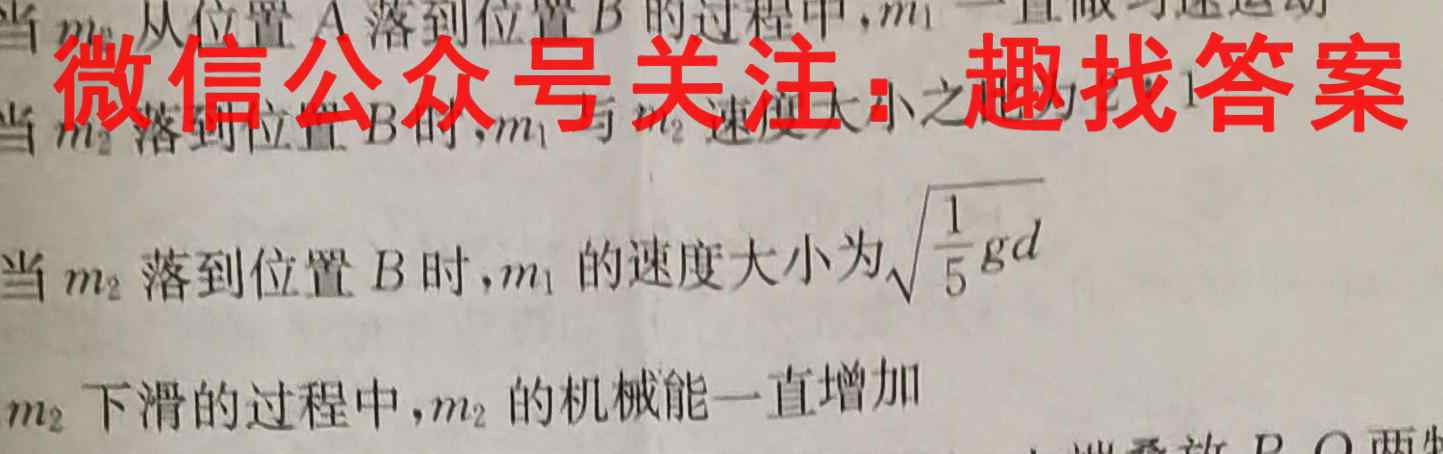 当 m₂ 从位置 A 落到位置 B 的过程中,m₁ 一直做匀速运动
微信公众号关注：趣找答案
当 m₂ 落到位置 B 时,m₁ 与 m₂ 速度大小之比为
当 m₂ 落到位置 B 时,m₁ 的速度大小为√(1/5 gd)
m₂ 下滑的过程中,m₂ 的机械能一直增加
叠放 P、Q 两